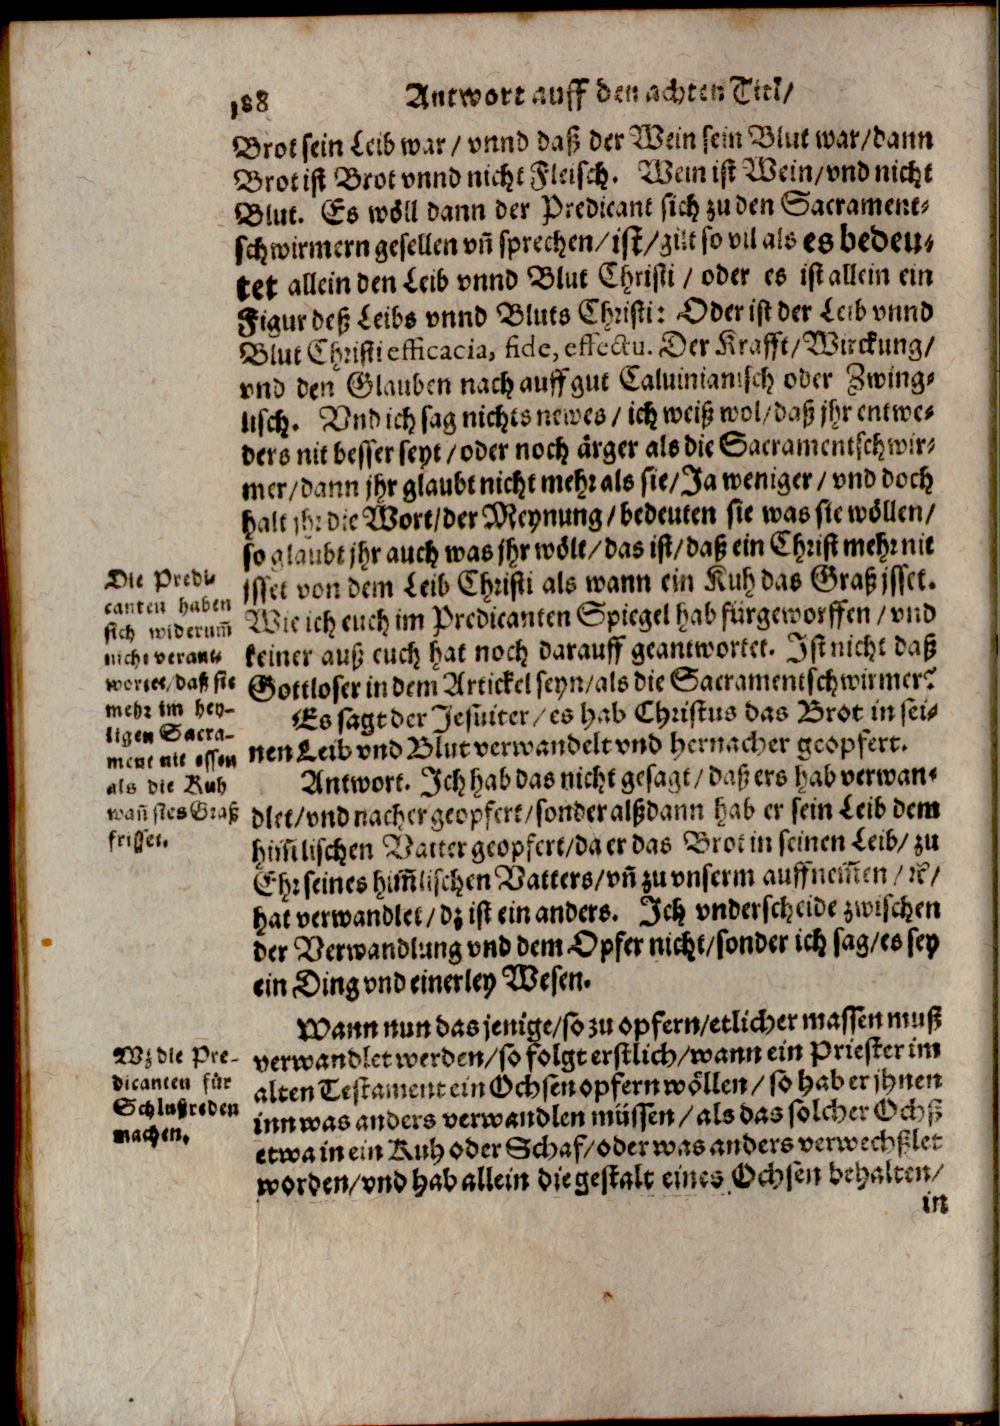 188
Antwort auff den achten Titl/
Brot sein Leib war / vnnd daß der Wein sein Blut war/dann
Brot ist Brot vnnd nicht Fleisch. Wein ist Wein/vnd nicht
Blut. Es wöll dann der Predicant sich zu den Sacrament-
schwirmern gesellen vñ sprechen/ist/gilt so vil als es bedeu-
tet allein den Leib vnnd Blut Christi / oder es ist allein ein
Figur deß Leibs vnnd Bluts Christi: Oder ist der Leib vnnd
Blut Christi efficacia, fide, effectu. Der Krafft/Wirckung/
vnd den Glauben nach auff gut Caluinianisch oder Zwing-
lisch. Vnd ich sag nichts newes / ich weiß wol/daß jhr entwe-
ders nit besser seyt / oder noch ärger als die Sacramentschwir-
mer/dann jhr glaubt nicht mehr als sie/Ja weniger / vnd doch
halt jhr die Wort/der Meynung/bedeuten sie was sie wöllen/
so glaubt jhr auch was jhr wölt/das ist/daß ein Christ mehr nit
jsset von dem Leib Christi als wann ein Kuh das Graß jsset.
Wie ich euch im Predicanten Spiegel hab fürgeworffen / vnd
keiner auß euch hat noch darauff geantwortet. Ist nicht daß
Gottloser in dem Artickel seyn/als die Sacramentschwirmer?
Die Predi-
canten haben
sich widerum̃
nicht verant-
wortet/daß sie
mehr im hey-
ligen Sacra-
ment nit essen
als die Kuh
wañ sies Graß
frisset.
Es sagt der Jesuiter / es hab Christus das Brot in sei-
nen Leib vnd Blut verwandelt vnd hernacher geopfert.
Antwort. Ich hab das nicht gesagt / daß ers hab verwan-
dlet/vnd nacher geopfert/sonder alßdann hab er sein Leib dem
him̃lischen Vatter geopfert/da er das Brot in seinen Leib/ zu
Ehr seines him̃lischen Vatters/vñ zu vnserm auffnem̃en /ꝛc/
hat verwandlet / dz ist ein anders. Ich vnderscheide zwischen
der Verwandlung vnd dem Opfer nicht/sonder ich sag/es sey
ein Ding vnd einerley Wesen.
Wann nun das jenige/so zu opfern/etlicher massen muß
verwandlet werden/so folgt erstlich/wann ein Priester im
alten Testament ein Ochsen opfern wöllen / so hab er jhnen
inn was anders verwandlen müssen / als das solcher Ochß
etwa in ein Kuh oder Schaf/oder was anders verwechßlet
worden/vnd hab allein die gestalt eines Ochsen behalten/
Wz die Pre-
dicanten für
Schlußreden
machen.
in